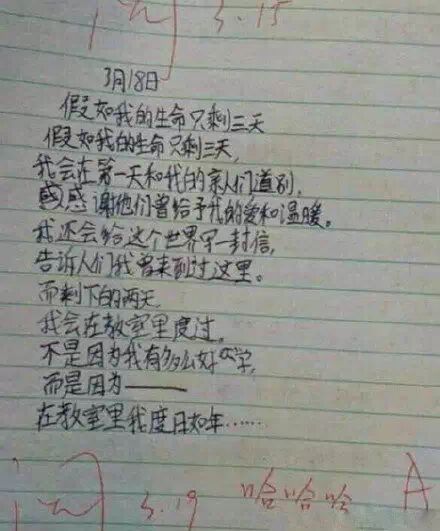 阅 3.15
3月18日
假如我的生命只剩三天
假如我的生命只剩三天,
我会在第一天和我的亲人们道别,
感谢他们曾给予我的爱和温暖。
我还会给这个世界写一封信,
告诉人们我曾来到过这里。
而剩下的两天,
我会在教室里度过,
不是因为我有多么好学,
而是因为——
在教室里我度日如年……
阅 3.19 哈哈哈 A